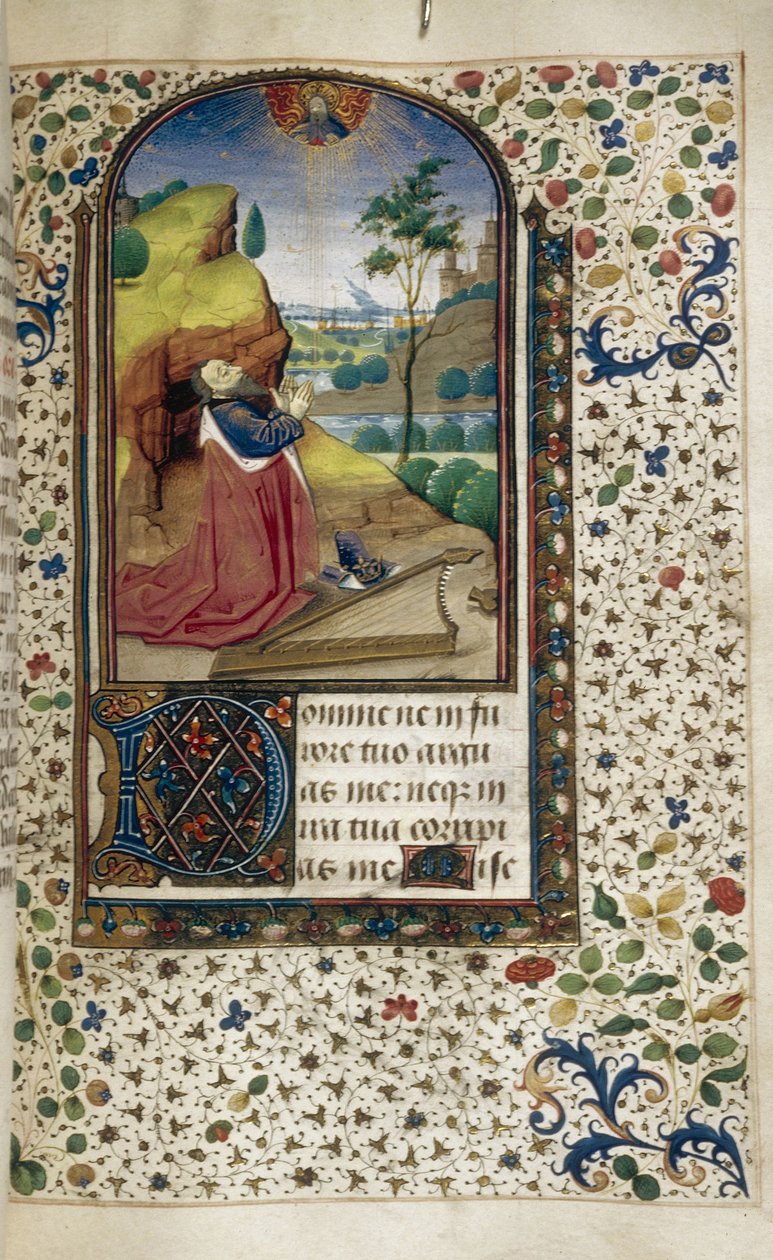 Domine ne in fu
rore tuo argu
as me: neqz in
ira tua corripi
as me Mise